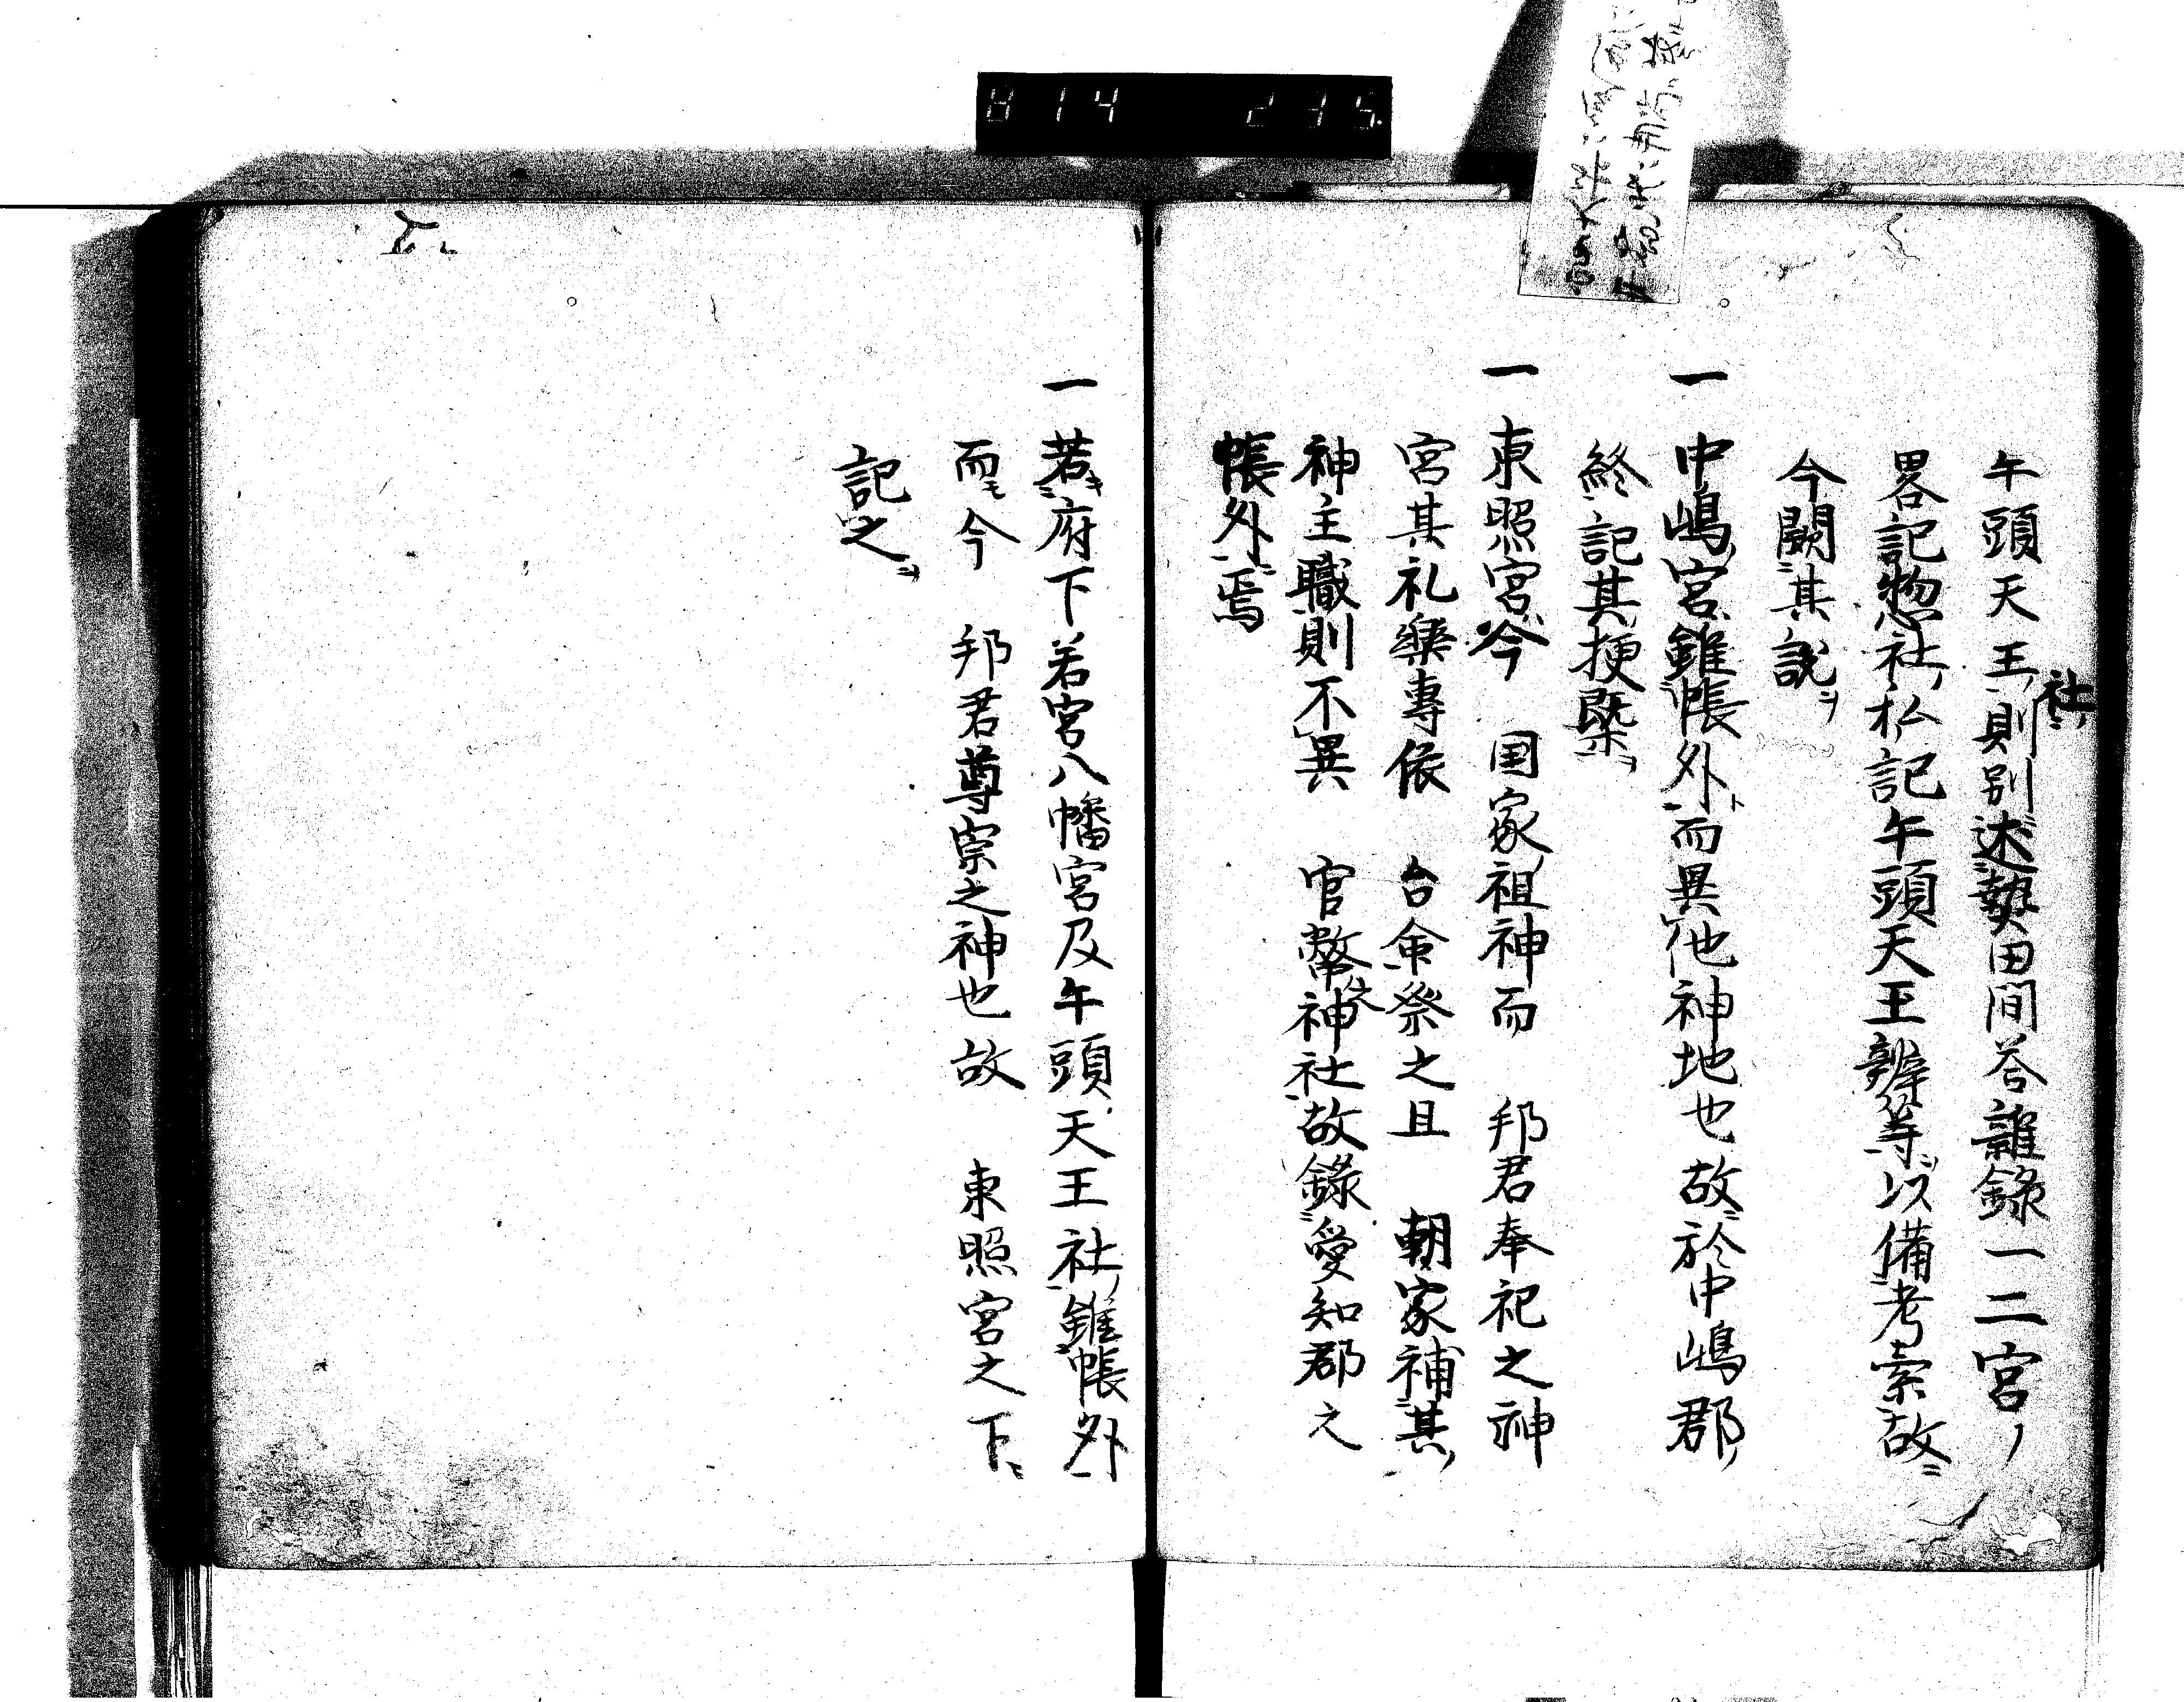 814 235
午頭天王社則別述熱田問荅雜録一二宮
畧記惣社私記午頭天王辨等以備考索故ニ
今闕其説ヲ
一 中嶋宮雖帳外ト而異他神地也故於中嶋郡
終記其梗槩ヲ
一 東照宮今 国家祖神而 邦君奉祀之神
宮其礼樂專依 台命祭之且 朝家補其
神主職則不異 官幣大神社故錄愛知郡之
帳外焉
一 若府下若宮八幡宮及午頭天王社雖帳外
而今 邦君尊崇之神也故 東照宮之下ニ
記之ヲ